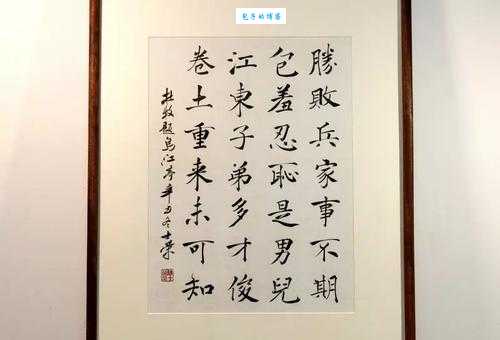 包子的博客
勝敗兵家事不期
包羞忍恥是男兒
江東子弟多才俊
卷土重来未可知
杜牧題烏江亭辛丑冬士榮